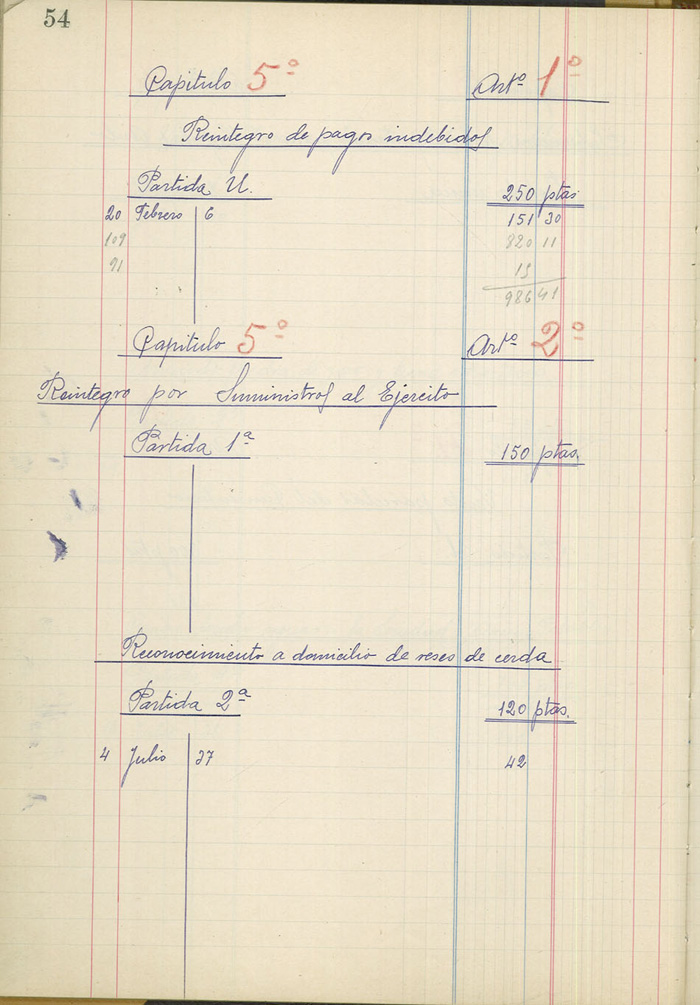 54
Capitulo 5º Artº 1º
Reintegro de pagos indebidos
Partida U. 250 ptas.
20 Febrero 6 151 30
109 820 11
91 15
986 41
Capitulo 5º Artº 2º
Reintegro por Suministros al Ejercito
Partida 1ª 150 ptas.
Reconocimiento a domicilio de reses de cerda
Partida 2ª 120 ptas.
4 Julio 37 42